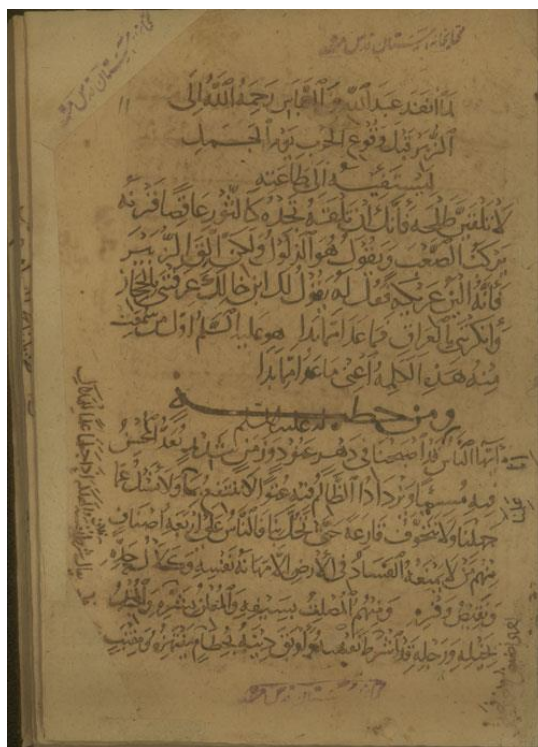 کتابخانه آستان قدس مشهد
لما انفذ عبد الله بن العباس رحمه الله الى
الزبير قبل وقوع الحرب يوم الجمل
ليستفيئه الى طاعته
لا تلقين طلحة فانك ان تلقه تجده كالثور عاقصا قرنه
يركب الصعب ويقول هو الذلول ولكن الق الزبير
فانه الين عريكة فقل له يقول لك ابن خالك عرفتني بالحجاز
وانكرتني بالعراق فما عدا مما بدا هو عليه السلم اول من سمعت
منه هذه الكلمة اعني ما عدا مما بدا
ومن خطبة
له عليه السلم
ايها الناس قد اصبحنا في دهر عنود وزمن شديد يعد المحسن
فيه مسيئا ويزداد الظالم فيه عتوا لا ننتفع بما علمنا ولا نسئل عما
جهلنا ولا نتخوف قارعة حتى تحل بنا فالناس على اربعة اصناف
منهم من لا يمنعه الفساد في الارض الا مهانة نفسه وكلال حده
ونضيض وفره ومنهم المصلت بسيفه والمعلن بشره والمجلب
بخيله ورجله قد اشرط نفسه واوبق دينه لحطام ينتهزه او مقنب